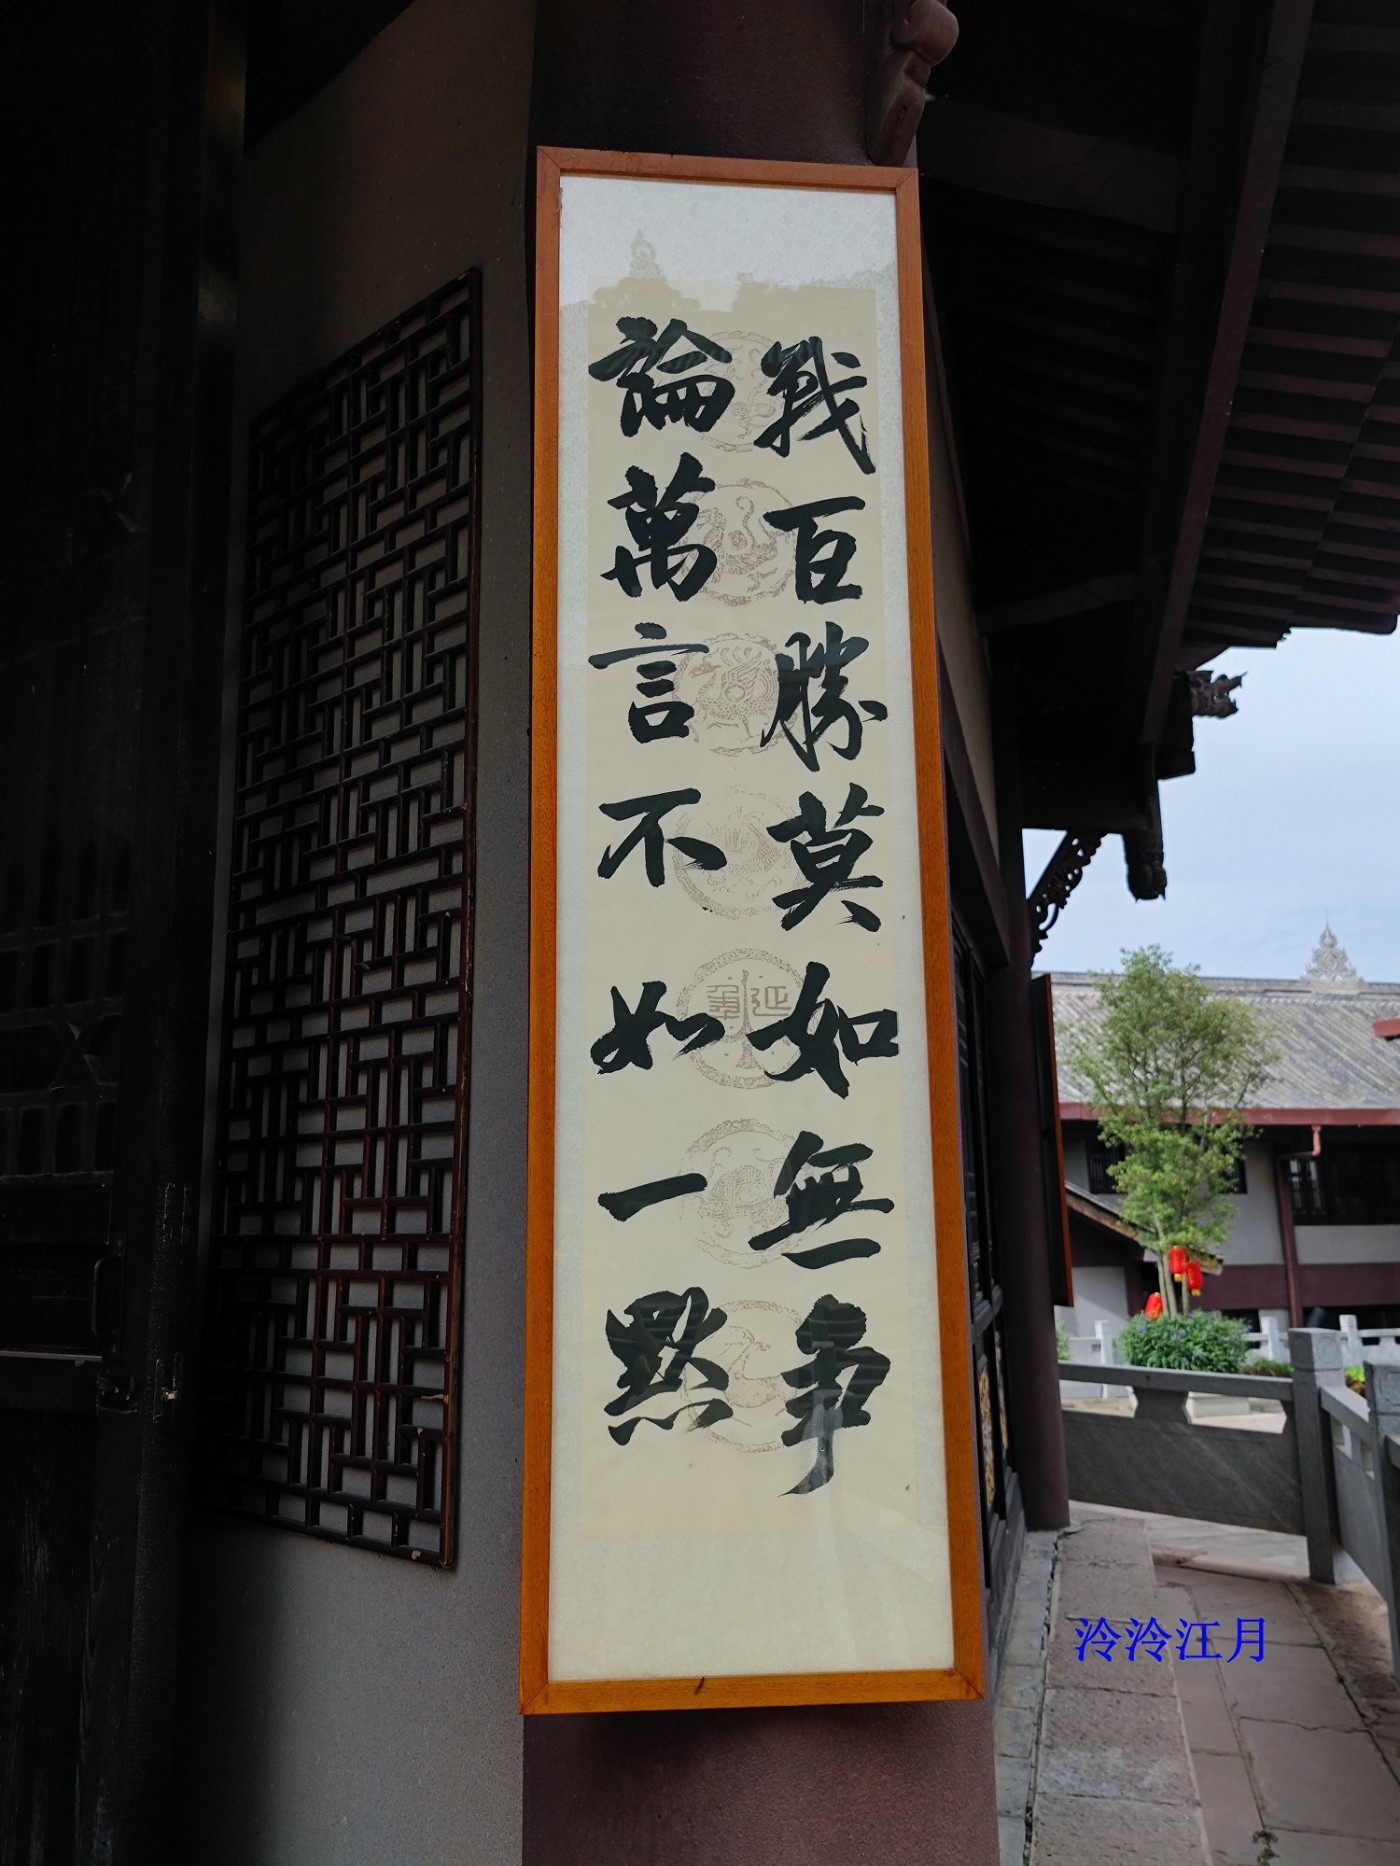 戰百勝莫如無爭
論萬言不如一默
泠泠江月